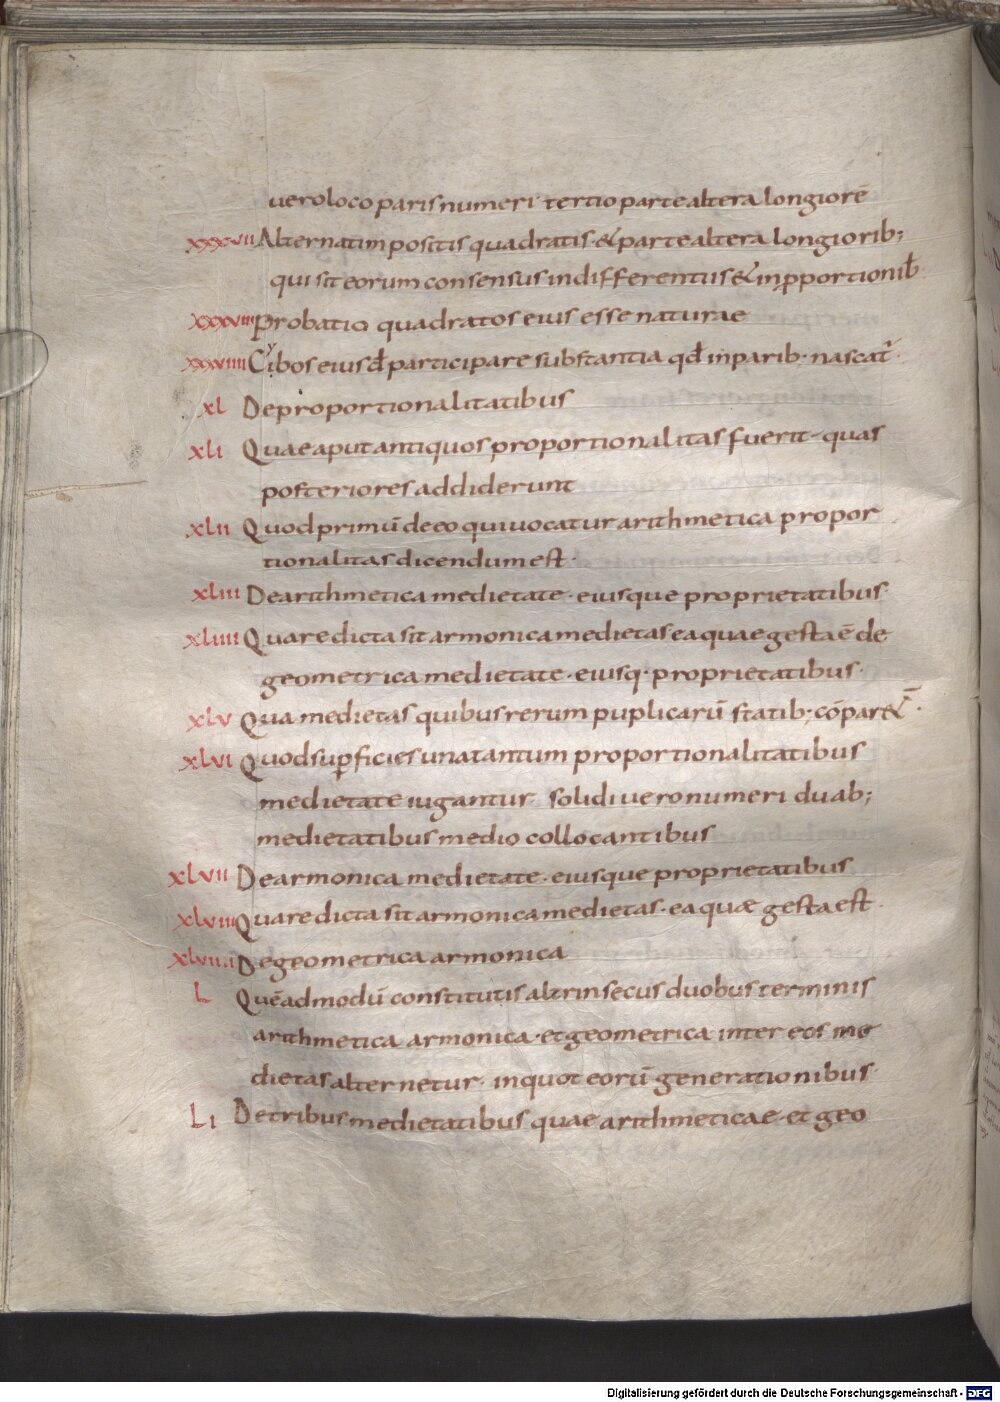 uero loco paris numeri tertio parte altera longiorē
xxxvii Alternatim positis quadratis · & parte altera longiorib;
qui sit eorum consensus in differentiis & in ꝓportionib̄
xxxviii Probatio quadratos eius esse naturae
xxxviiii Cybos eius đ participare substantia qđ inparib· nascat̄·
xl De proportionalitatibus
xli Quae aput antiquos proportionalitas fuerit · quas
posteriores addiderunt
xlii Quod primū de eo qui uocatur arithmetica propor
tionalitas dicendum est ·
xliii De arithmetica medietate · eiusque proprietatibus
xliiii Quare dicta sit armonica medietas ea quae gesta ē de
geometrica medietate · eiusq· proprietatibus ·
xlv Qua medietas quibus rerum puplicarū statib; cōpar&̄ ·
xlvi Quod suꝑficies una tantum proportionalitatibus
medietate iugantur solidi uero numeri duab;
medietatibus medio collocantibus
xlvii De armonica medietate · eiusque proprietatibus
xlviii Quare dicta sit armonica medietas · ea quæ gesta est ·
xlviiii De geometrica armonica
L Quēadmodū constitutis altrinsecus duobus terminis
arithmetica armonica · et geometrica inter eos me
dietas alternetur · inquot eorū generationibus ·
Li De tribus medietatibus quae arithmeticae · et geo
Digitalisierung gefördert durch die Deutsche Forschungsgemeinschaft - DFG